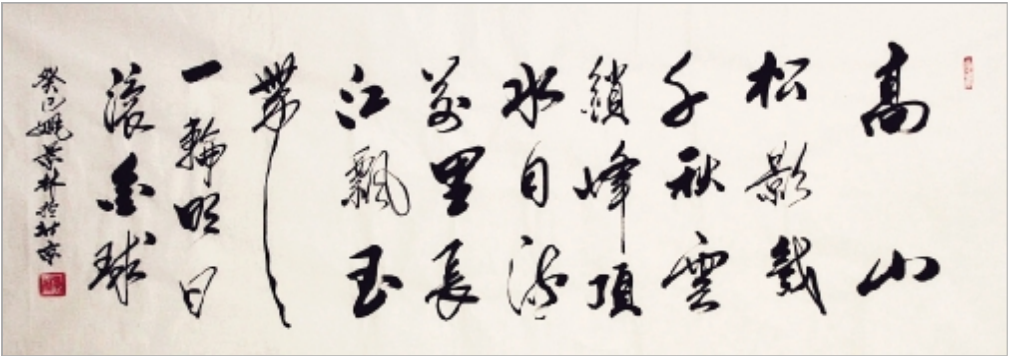 高山
松影幾
千秋雲
鎖峰頂
水自流
萬里長
江飄玉
帶
一輪明月
滾金球
癸巳姚景林於北京